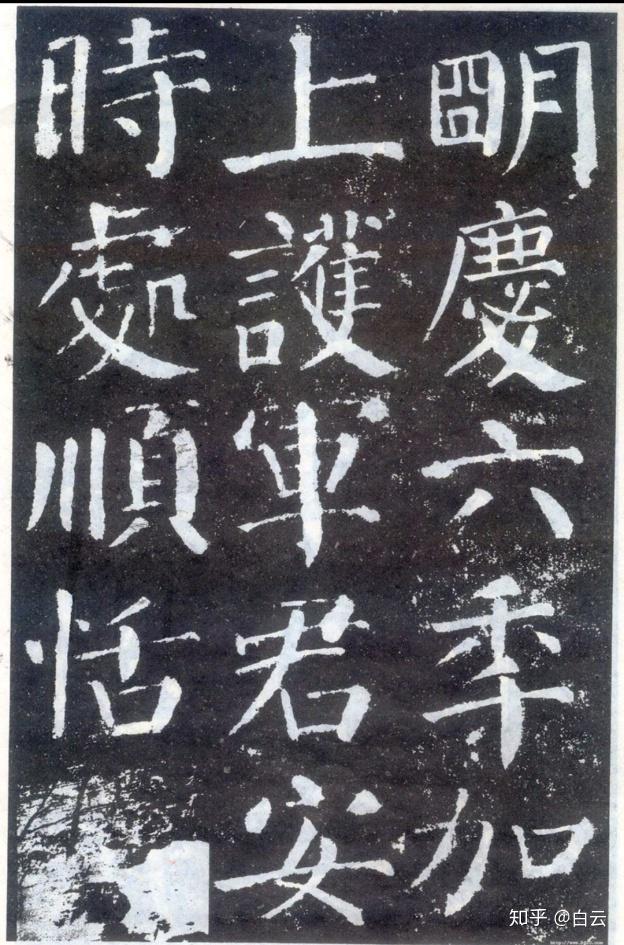 朙慶六秊加
上護軍君安
時處順恬
知乎 @白云